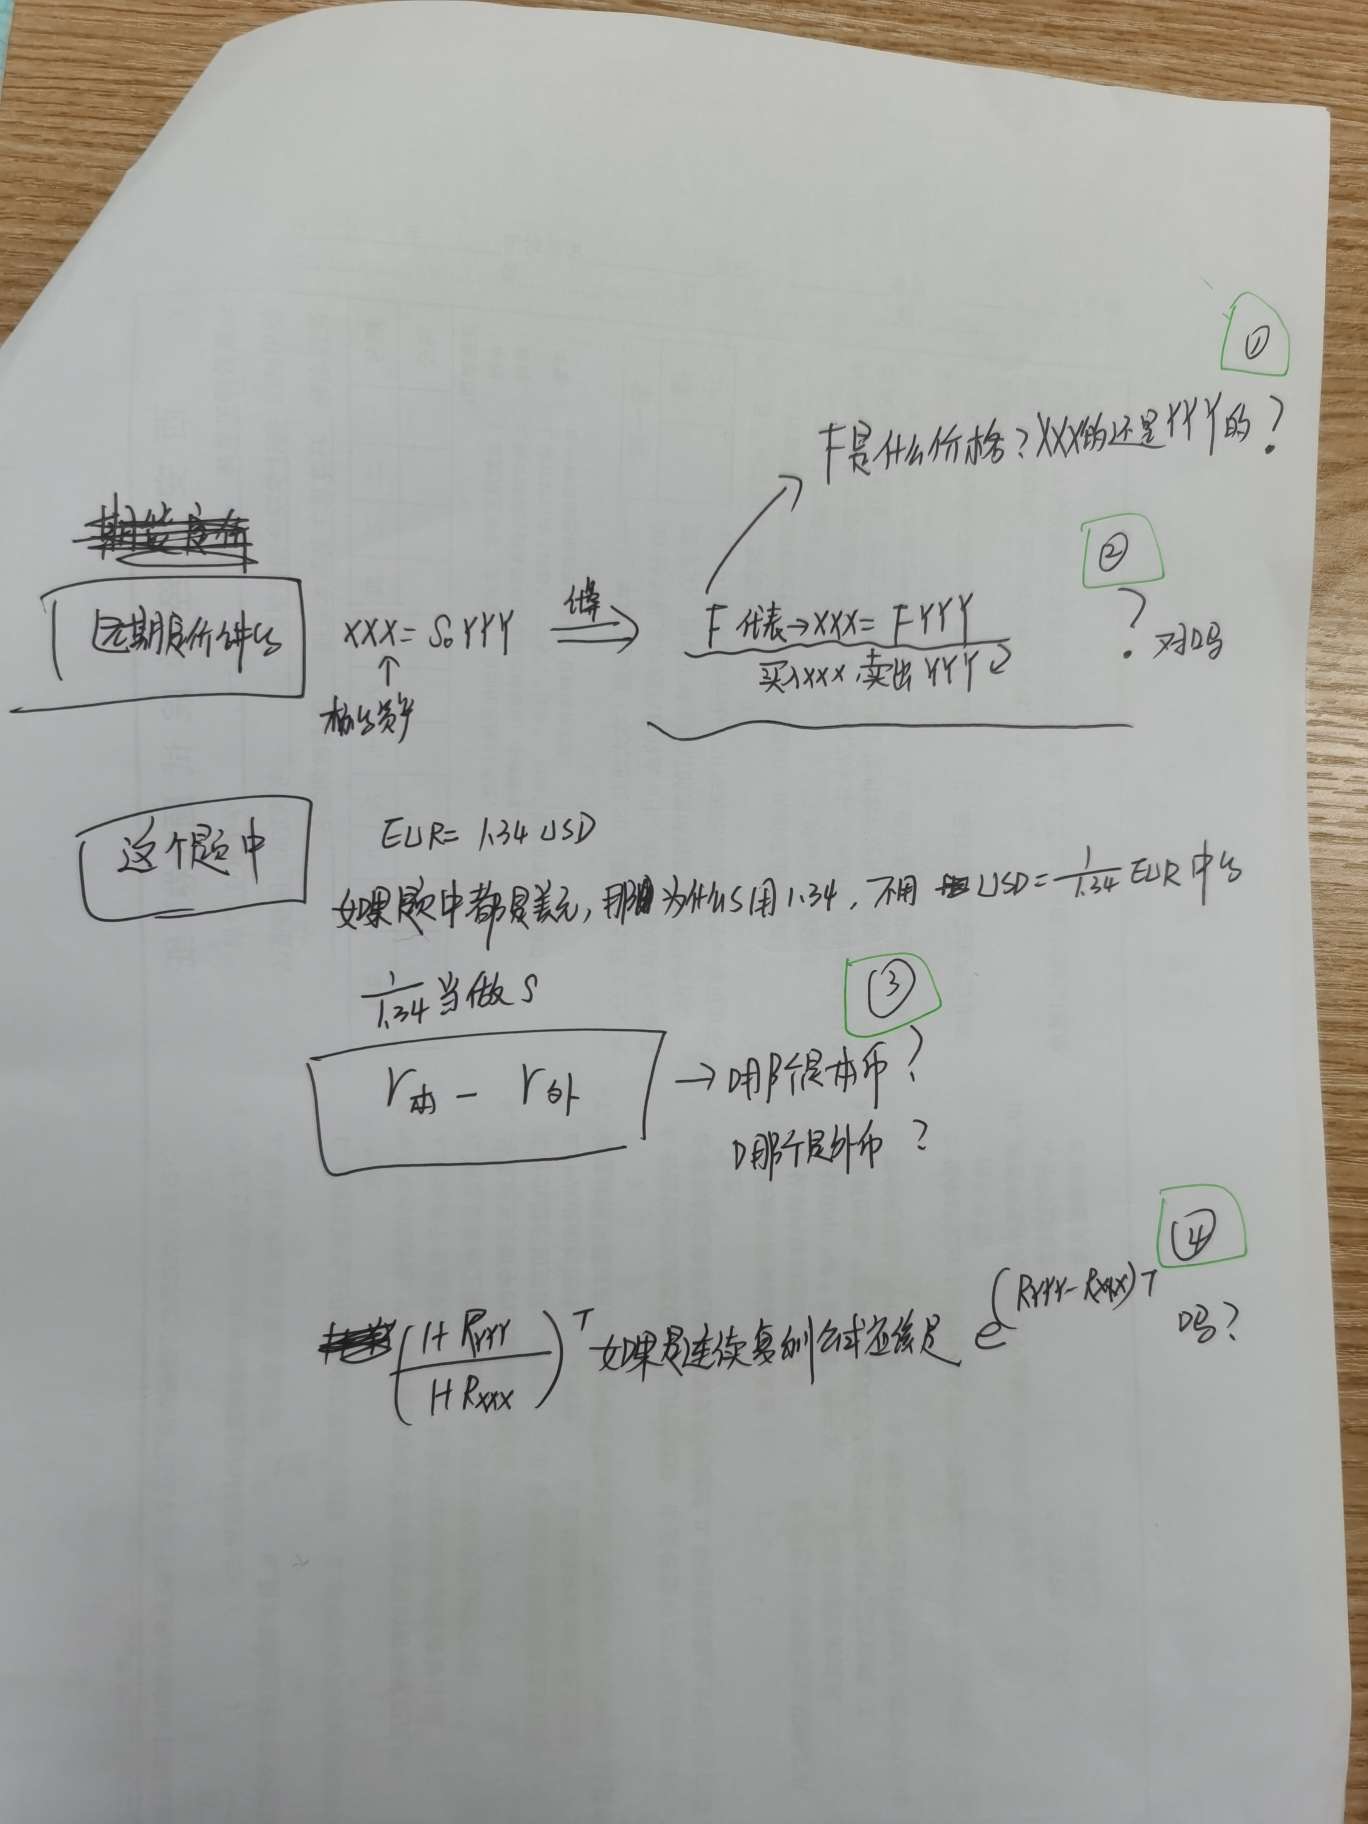 ①
F是什么价格？XXX的还是YYY的？
②
远期定价讲的
XXX = S₀ YYY
计算
F 代表→XXX = F YYY
买入XXX，卖出YYY
？对吗
↑
标的资产
这个题中
EUR = 1.34 USD
如果题中都是美元，那为什么S用1.34，不用 USD = 1/1.34 EUR 中的
1/1.34 当做 S
③
r本 - r外
→ 哪个是本币？
哪个是外币？
④
(1+Ryyy / 1+Rxxx)^T 如果是连续复利公式应该是 e^(RYYY-RXXX)T 吗？